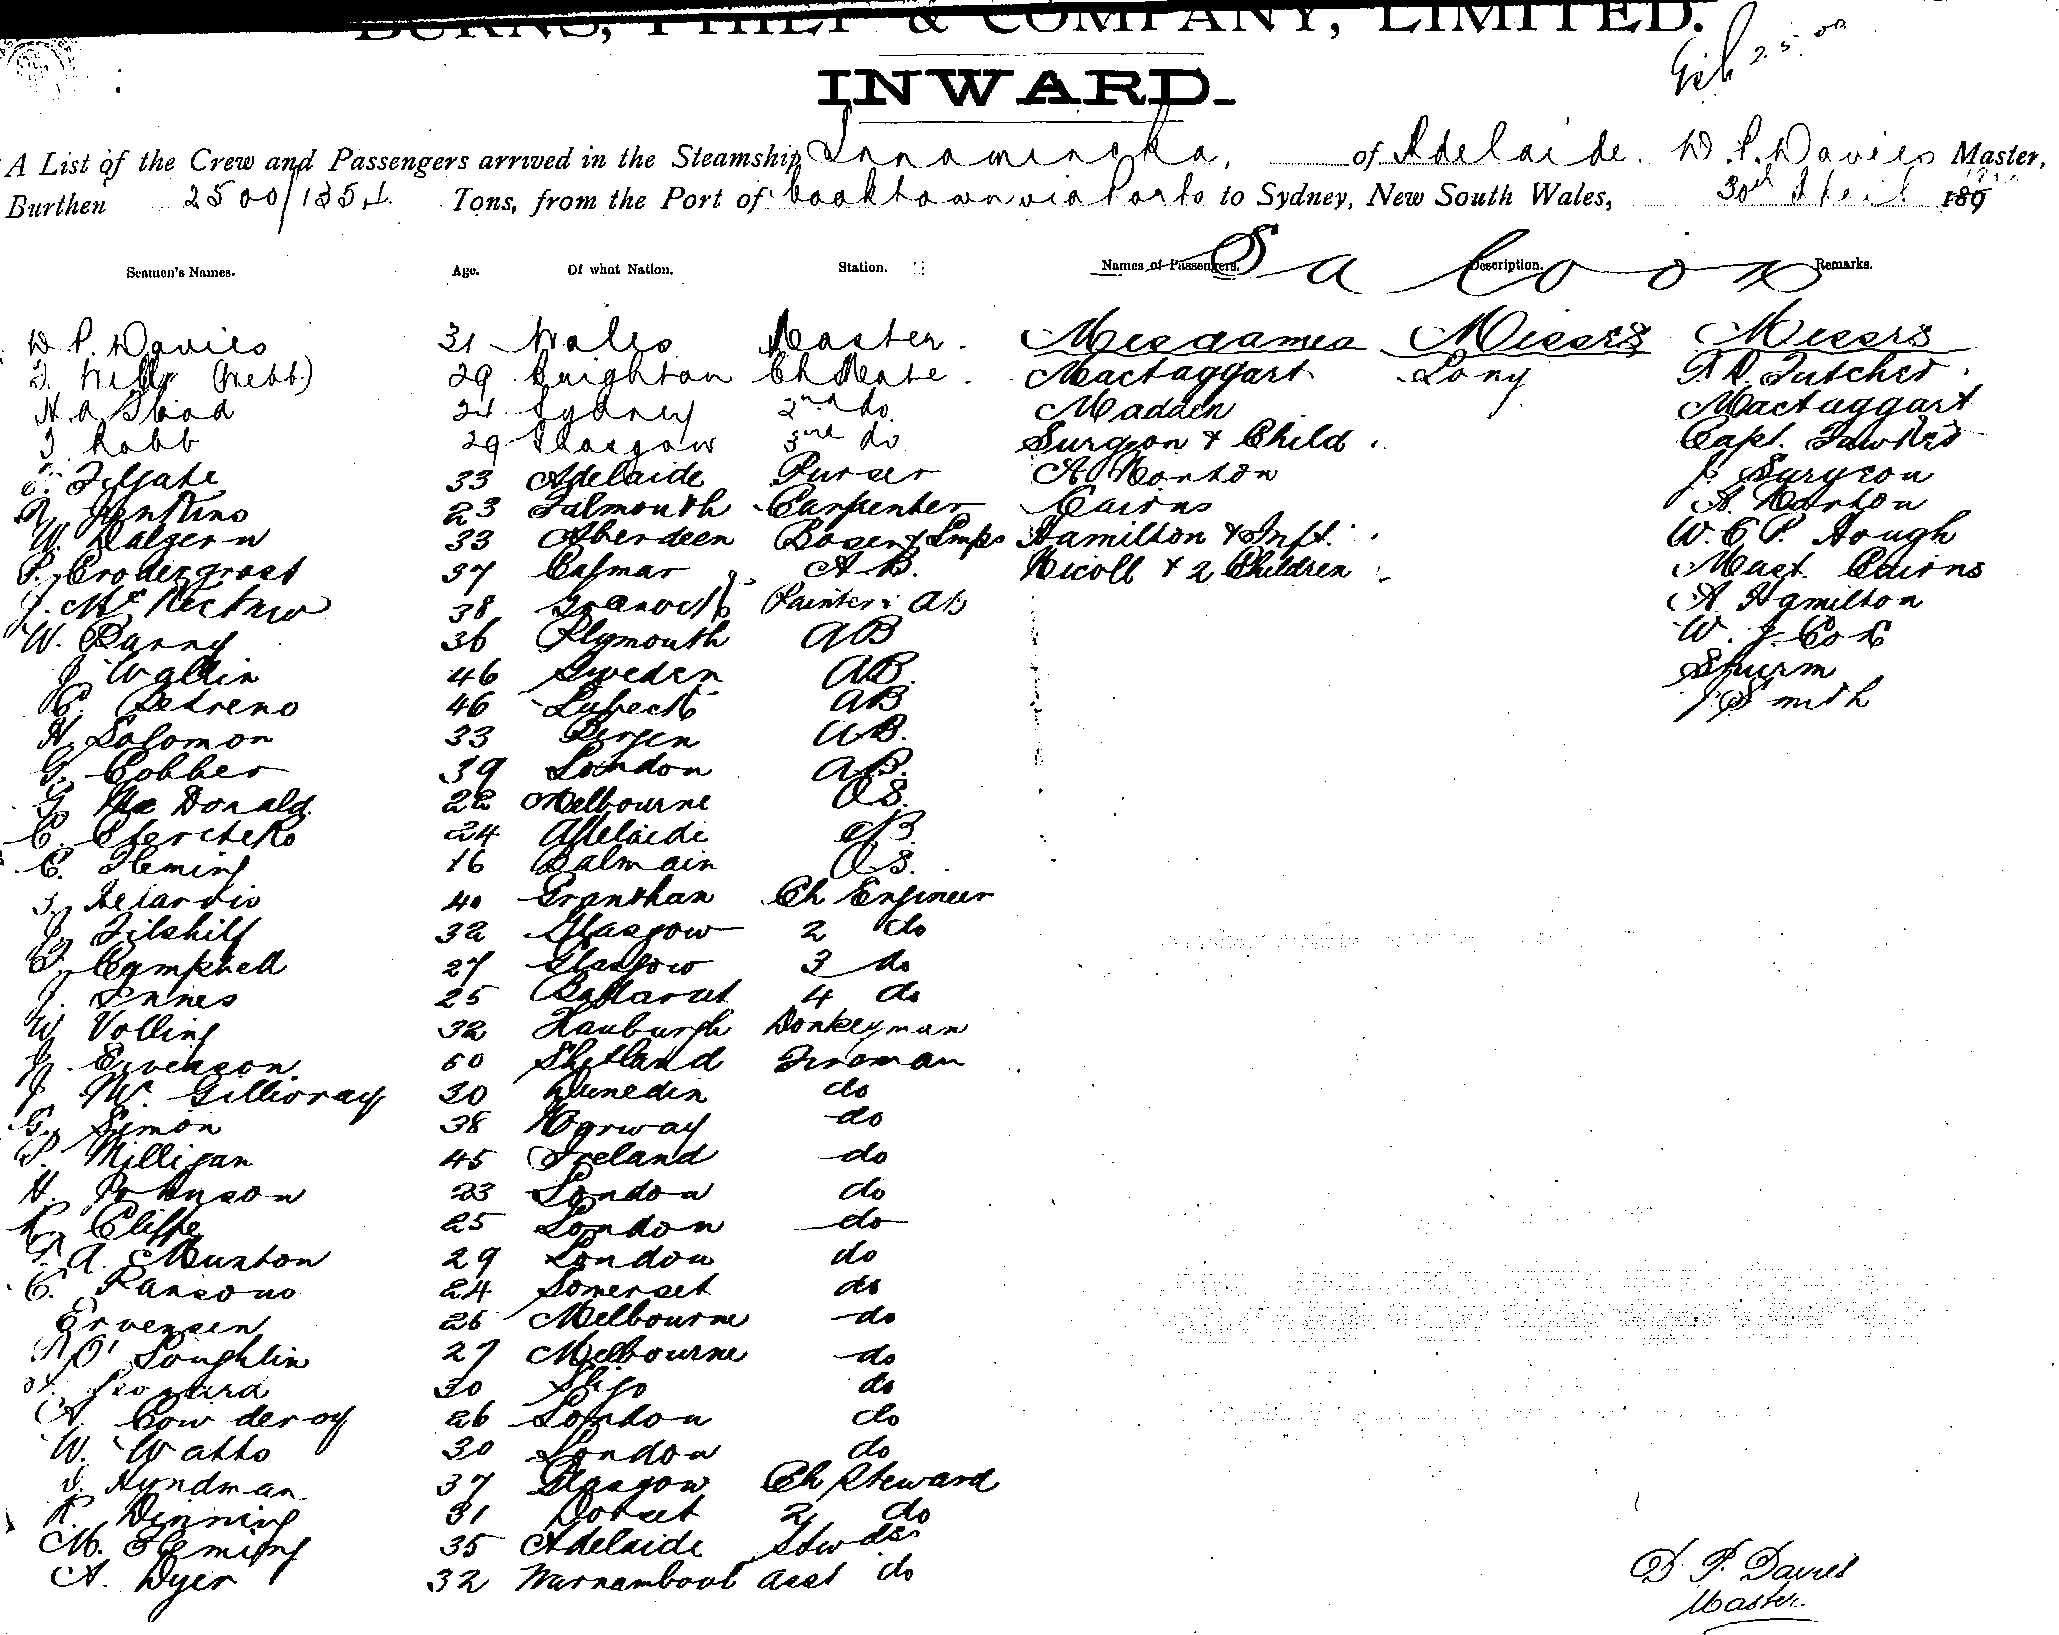 BURNS, PHILP & COMPANY, LIMITED.
INWARD.
A List of the Crew and Passengers arrived in the Steamship Innamincka, of Adelaide. D. P. Davies Master,
Burthen 2500/1354 Tons, from the Port of Cooktown via Ports to Sydney, New South Wales, 30th April 189
Seamen's Names. Age. Of what Nation. Station. Names of Passengers. Description. Remarks.
Saloon
D P. Davies 31 Wales Master. Mesdames Misses Messrs
(Webb) 29 Brighton Ch Mate. Mactaggart Long Futcher
21 Sydney 2nd do. Madden Mactaggart
Robb 29 Glasgow 3rd do Surgeon & Child Capt.
Filgate 33 Adelaide Purser A Norton J. Surgeon
Jenkins 23 Falmouth Carpenter Cairns A. Norton
W. Dalgern 33 Aberdeen Bosen & Lmps Hamilton & Inft. W. C P. Hough
P. 37 Calmar A B. Nicoll & 2 Children Mast. Cairns
J. Mc 38 Painter: AB A. Hamilton
W. Panny 36 Plymouth AB W. J. Cox
J Wallin 46 Sweden AB. Spurm
C. 46 Lubeck AB J Smith
H Solomon 33 Bergen AB.
G. Cobber 39 London AB.
G. Mc Donald 22 Melbourne OS.
C. 24 Adelaide AB
C. Fleming 16 Balmain OS.
40 Granthan Ch Engineer
J. Filshill 32 Glasgow 2 do
Campbell 27 Glasgow 3 do
J. Innes 25 Ballarat 4 do
W Volling 32 Hauburgh Donkeyman
50 Shetland Fireman
J. Mc. Gillivray 30 Dunedin do
G. Symon 38 Norway do
P. Milligan 45 Ireland do
H. Johnson 23 London do
Cliffe 25 London do
A. Muxton 29 London do
C. Parsons 24 Somerset do
Ervensen 26 Melbourne do
O' Loughlin 27 Melbourne do
30 Sligo do
A. Cowderoy 26 London do
W. Watts 30 London do
Hyndman 37 Glasgow Ch Steward
R. Dinning 31 Dorset 2 do
M. Fleming 35 Adelaide Stwdss
A. Dyer 32 Warnambool Asst do
D. P. Davies
Master.